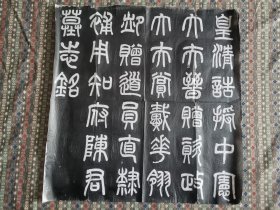 皇清誥授中憲
大夫晉贈資政
大夫賞戴花翎
卹贈道員直隸
補用知府陳君
墓志銘